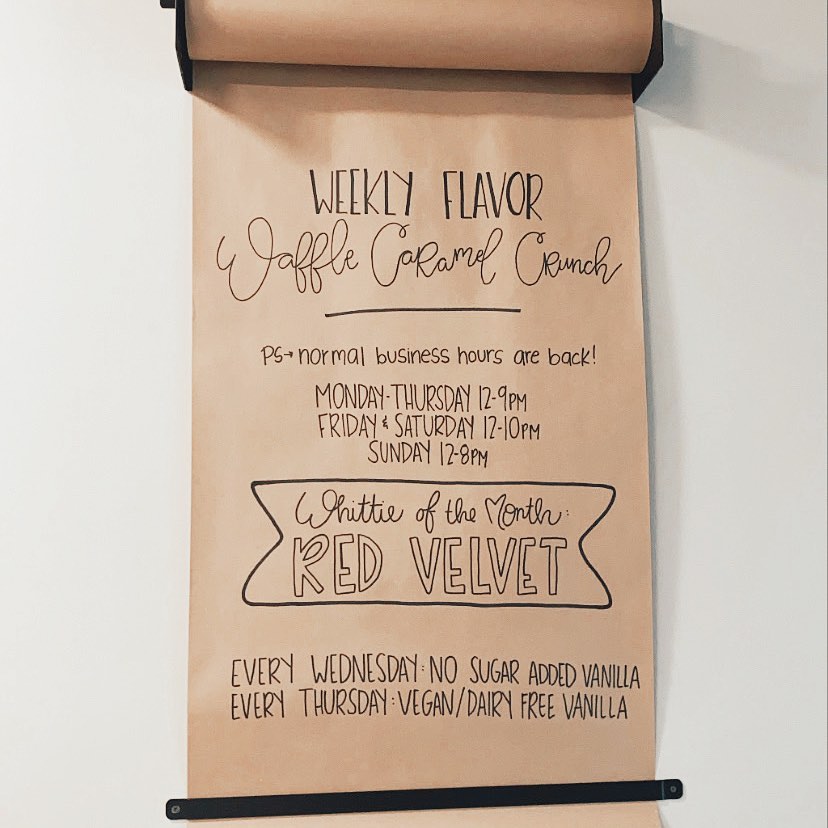 WEEKLY FLAVOR
Waffle Caramel Crunch
PS→normal business hours are back!
MONDAY-THURSDAY 12-9PM
FRIDAY & SATURDAY 12-10PM
SUNDAY 12-8PM
Whittie of the Month:
RED VELVET
EVERY WEDNESDAY: NO SUGAR ADDED VANILLA
EVERY THURSDAY: VEGAN/DAIRY FREE VANILLA